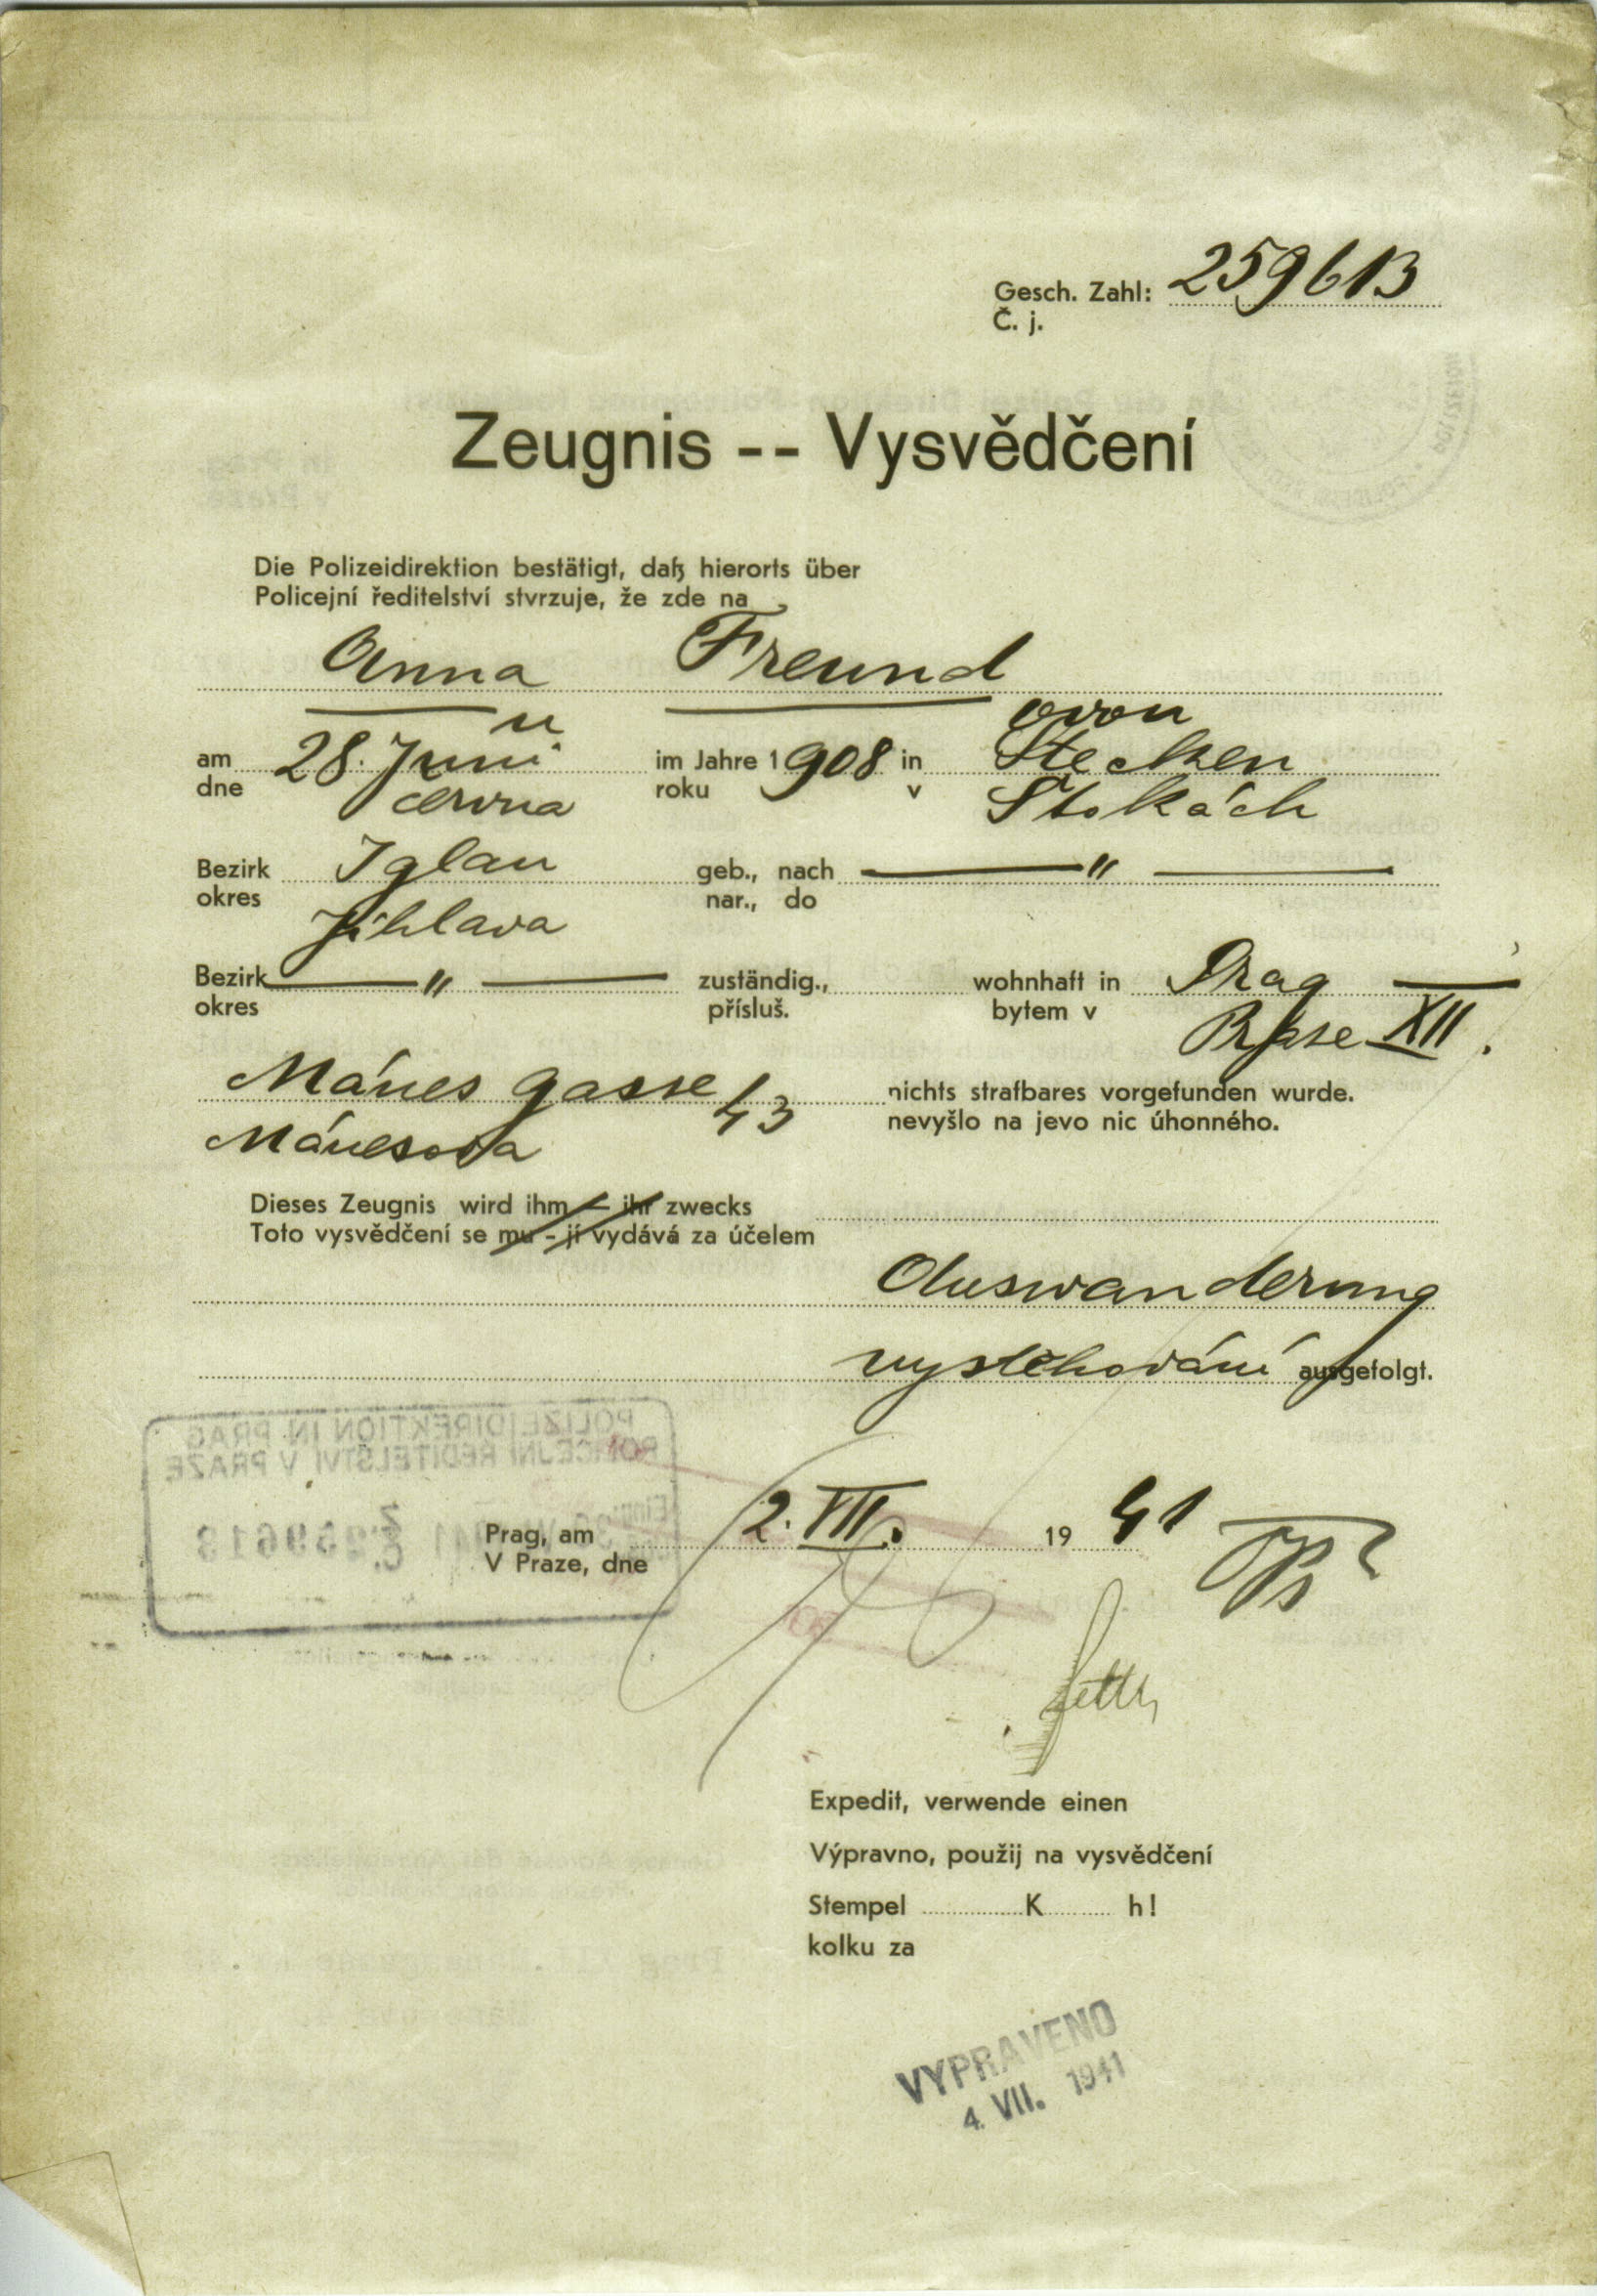 Gesch. Zahl: 259613
Č. j.
Zeugnis -- Vysvědčení
Die Polizeidirektion bestätigt, daß hierorts über
Policejní ředitelství stvrzuje, že zde na
Anna Freund
u ovou
am 28. Juni im Jahre 1908 in Stecken
dne června roku v Štokách
Bezirk Iglau geb., nach — " —
okres Jihlava nar., do
Bezirk — " — zuständig., wohnhaft in Prag —
okres přísluš. bytem v Praze XII.
Mánes gasse 43 nichts strafbares vorgefunden wurde.
Mánesova nevyšlo na jevo nic úhonného.
Dieses Zeugnis wird ihm – ihr zwecks
Toto vysvědčení se mu - jí vydává za účelem
Auswanderung
vystěhování ausgefolgt.
POLIZEIDIREKTION IN PRAG
POLICEJNÍ ŘEDITELSTVÍ V PRAZE
Z. Č. 259613
Prag, am 2. VII. 19 41
V Praze, dne
Expedit, verwende einen
Výpravno, použij na vysvědčení
Stempel K h!
kolku za
VYPRAVENO
4. VII. 1941